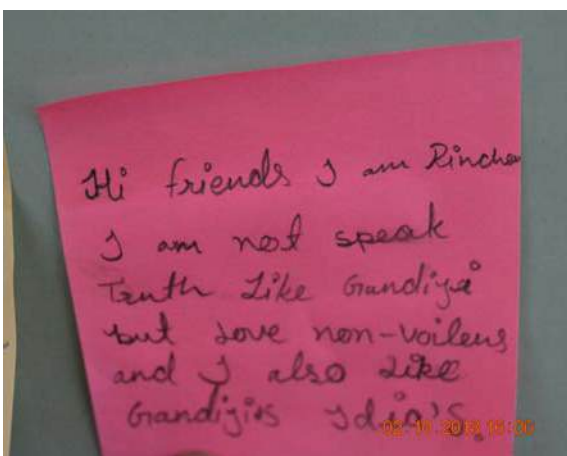 Hi friends I am Rinche
I am not speak
Truth Like Gandiji
but Love non-voilens
and I also Like
Gandijis Idia's.